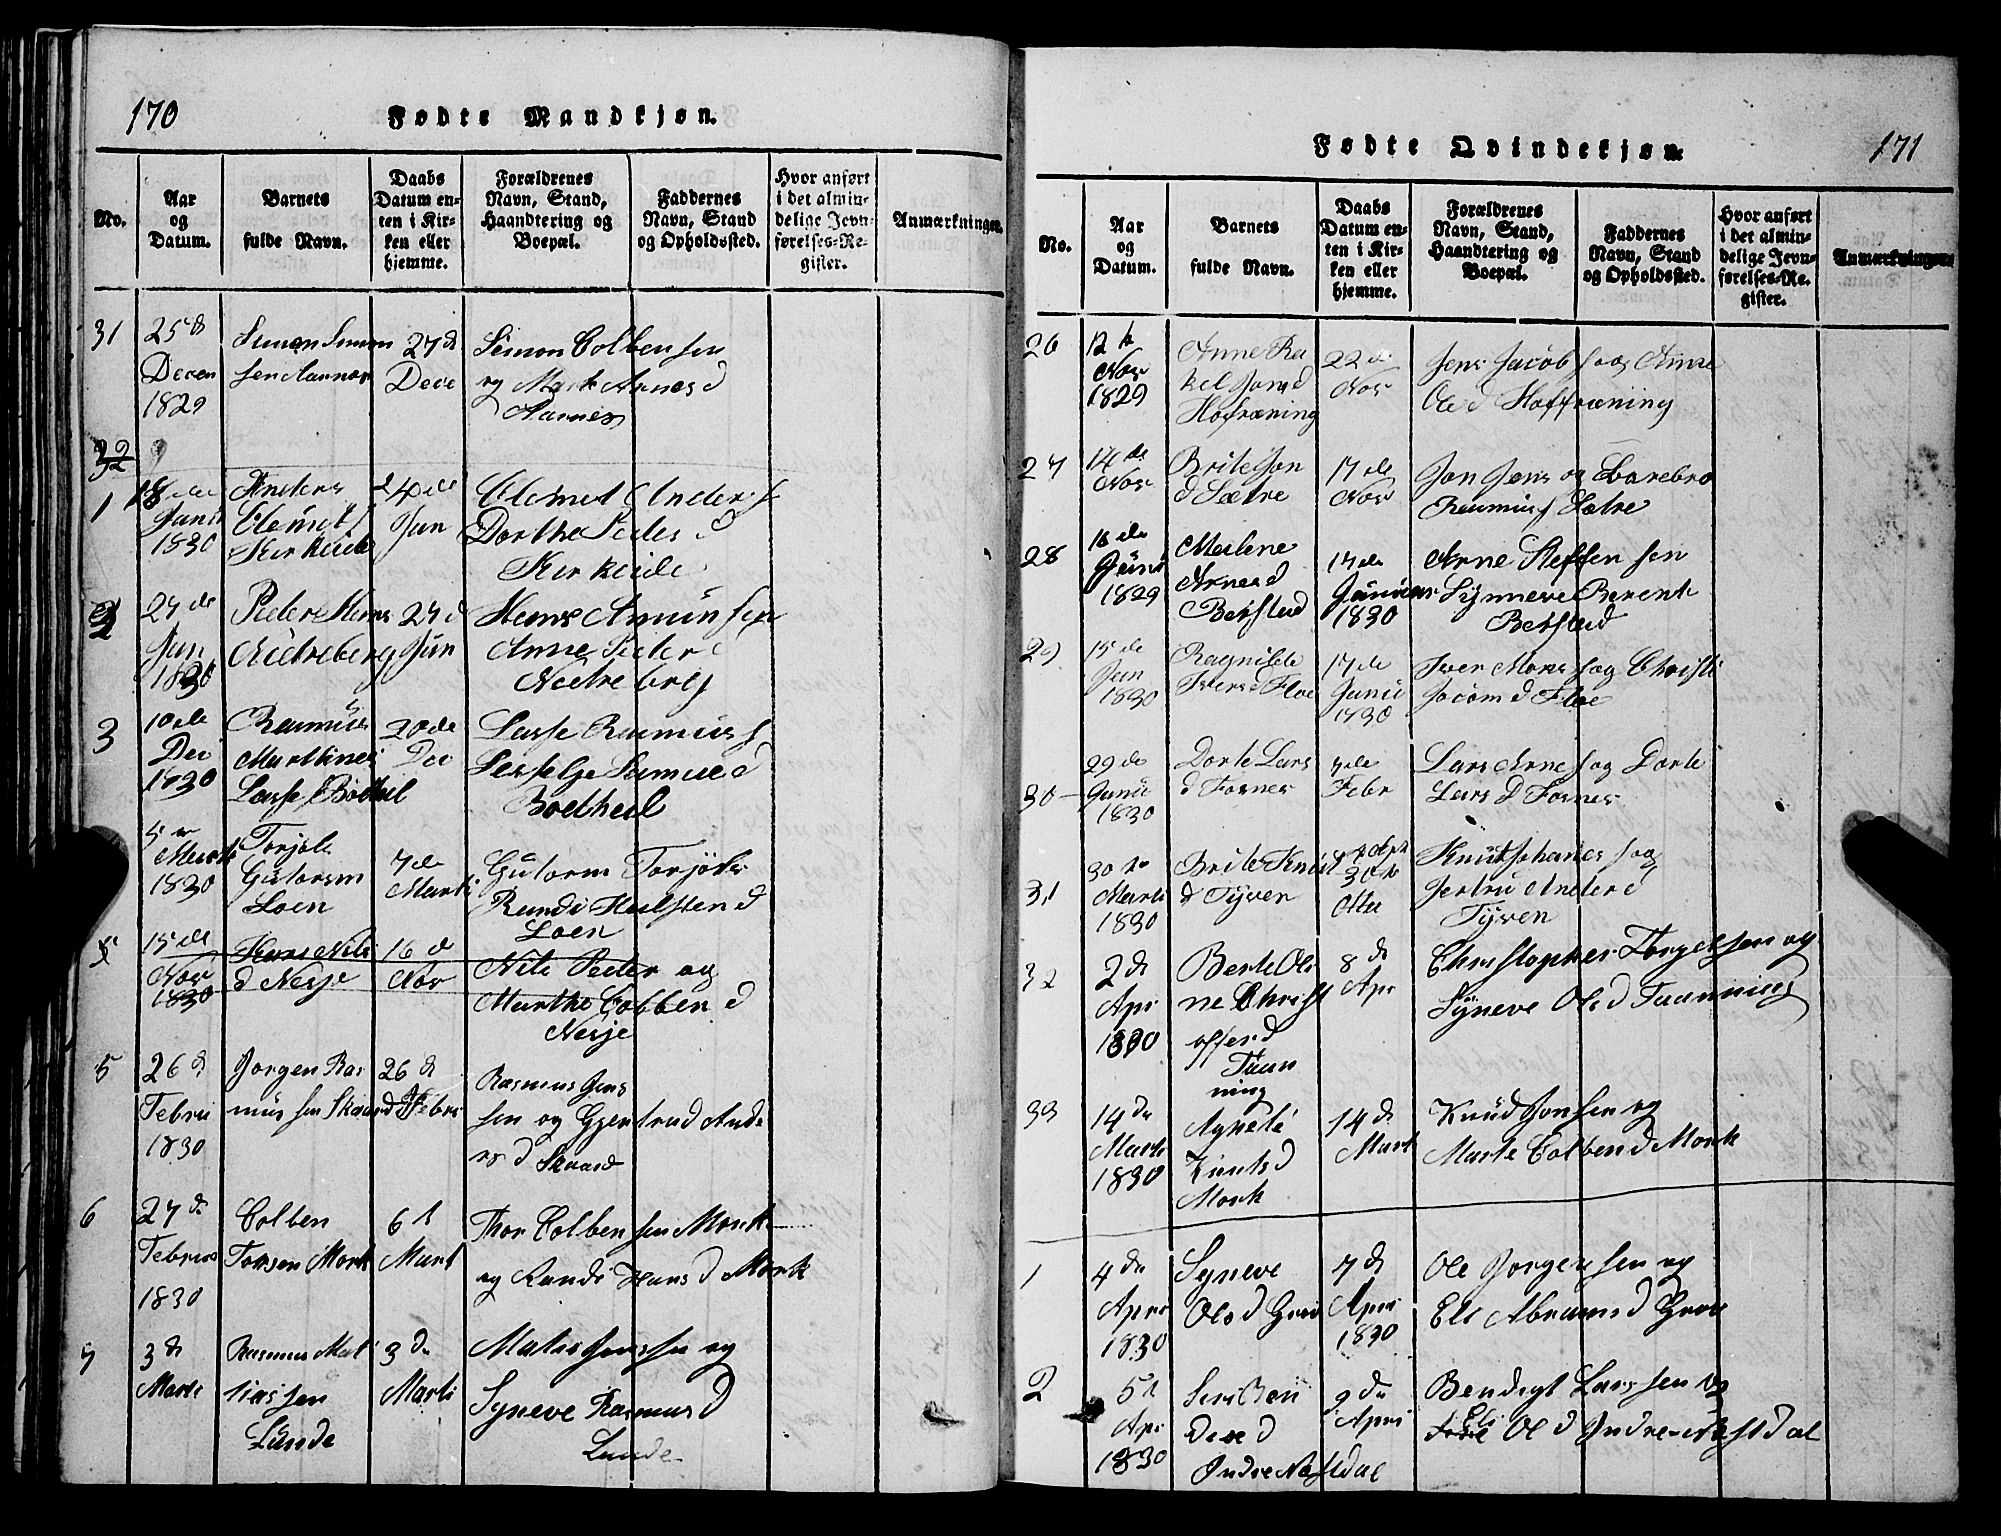 170
Fødte Mandkjøn.
No.
Aar
og
Datum.
Barnets
fulde Navn.
Daabs
Datum en-
ten i Kir-
ken eller
hjemme.
Forældrenes
Navn, Stand,
Haandtering og
Boepæl.
Faddernes
Navn, Stand
og Opholdssted.
Hvor anført
i det almin-
delige Jevn-
førelses-Re-
gister.
Anmærkninger.
31
25 d
Decem
1829
Simon Simon
sen Aarnes
27 d
Dece
Simon Colbensen
og Marte Arnes d
Aarnes
32
1
18 de
Janu
1830
Anders
Clemet f
Kirkeide
24 de
Jan
Clemet Anders f
Dorthe Peders d
Kirkeide
2
27 de
Jan
1830
Peder Hans
Nietreberg
27 d
Jan
Hans Amunsen
Anne Peder
Neetreberg
3
10 de
Dei
1830
Rasmus
Marthines
Lasse Bødtheil
20 de
Dei
Lasse Rasmus f
Boetheil
5
Marti
1830
Torjole
Gutorm
Loen
7 de
Marti
Gutorm Torjoles
Randi Halsten d
Loen
5
15 de
Nov
1830
Nils
d Nesje
16 d
Nov
Nils Peder og
Marthe Colben d
Nesje
5
26 d
Febru
1830
Jorgen Ras
mus sen Skaard
26 d
Febr
Rasmus Jens
sen og Gjertrud Ande
rs d Skaard
6
27 d
Februa
1830
Colben
Torsen Mork
6 t
Mart
Thor Colben sen Mork
og Rande Hans d Mork
7
3 d
Marte
Rasmus Mat
tias sen
Lunde
3 d
Marti
Matis Jenssen og
Syneve Rasmus d
Lunde
171
Fødte Qvindekjøn.
No.
Aar
og
Datum.
Barnets
fulde Navn.
Daabs
Datum en-
ten i Kir-
ken eller
hjemme.
Forældrenes
Navn, Stand,
Haandtering og
Boepæl.
Faddernes
Navn, Stand
og Opholdssted.
Hvor anført
i det almin-
delige Jevn-
førelses-Re-
gister.
Anmærkninger.
26
12 te
Nov
1829
Anne Ra
kel Jens d
Hofræning
22 de
Nov
Jens Jacob f og Anne
Ole d Hoffræning
27
14 de
Nov
Brite Jon
d Sætre
17 de
Nov
Jon Jens og Barebra
Rasmus f Sætre
28
16 de
Juni
1829
Malene
Arnes d
Berstad
17 de
Januar
1830
Arne Steffen sen
Synneve Berent
Berstad
29
15 de
Jan
1830
Ragnilde
Ivers d Floe
17 de
Janu
1830
Iver Mons f og Christi
Jocom d Floe
30
29 de
Janu
1830
Dorte Lars
d Fosnes
7 de
Febr
Lars Arne f og Dorte
Lars d Fosnes
31
30 te
Marti
1830
Brite Knut
d Tyven
30 te
Knut Johanes f og
Jertru Ander d
Tyven
32
2 d
Apr
1830
Berte Oli
ne Christ
offer d
Taan
ning
8 d
Apr
Christopher Torgelsen og
Syneve Ols d Taanning
33
14 d
Marti
1830
Agnete
Knuts d
Mork
14 d
Mart
Knud Jonsen og
Marte Colben d Mork
1
4 d
Apri
1830
Syneve
Ols d Grov
7 d
Apri
1830
Ole Jorgensen og
Eli Abrams d Grov
2
5 t
Apr
1830
Siri Ben
dix d
Indre Nestdal
9 d
Apri
Bendigt Larssen og
Eli Ol d Indre Nestdal